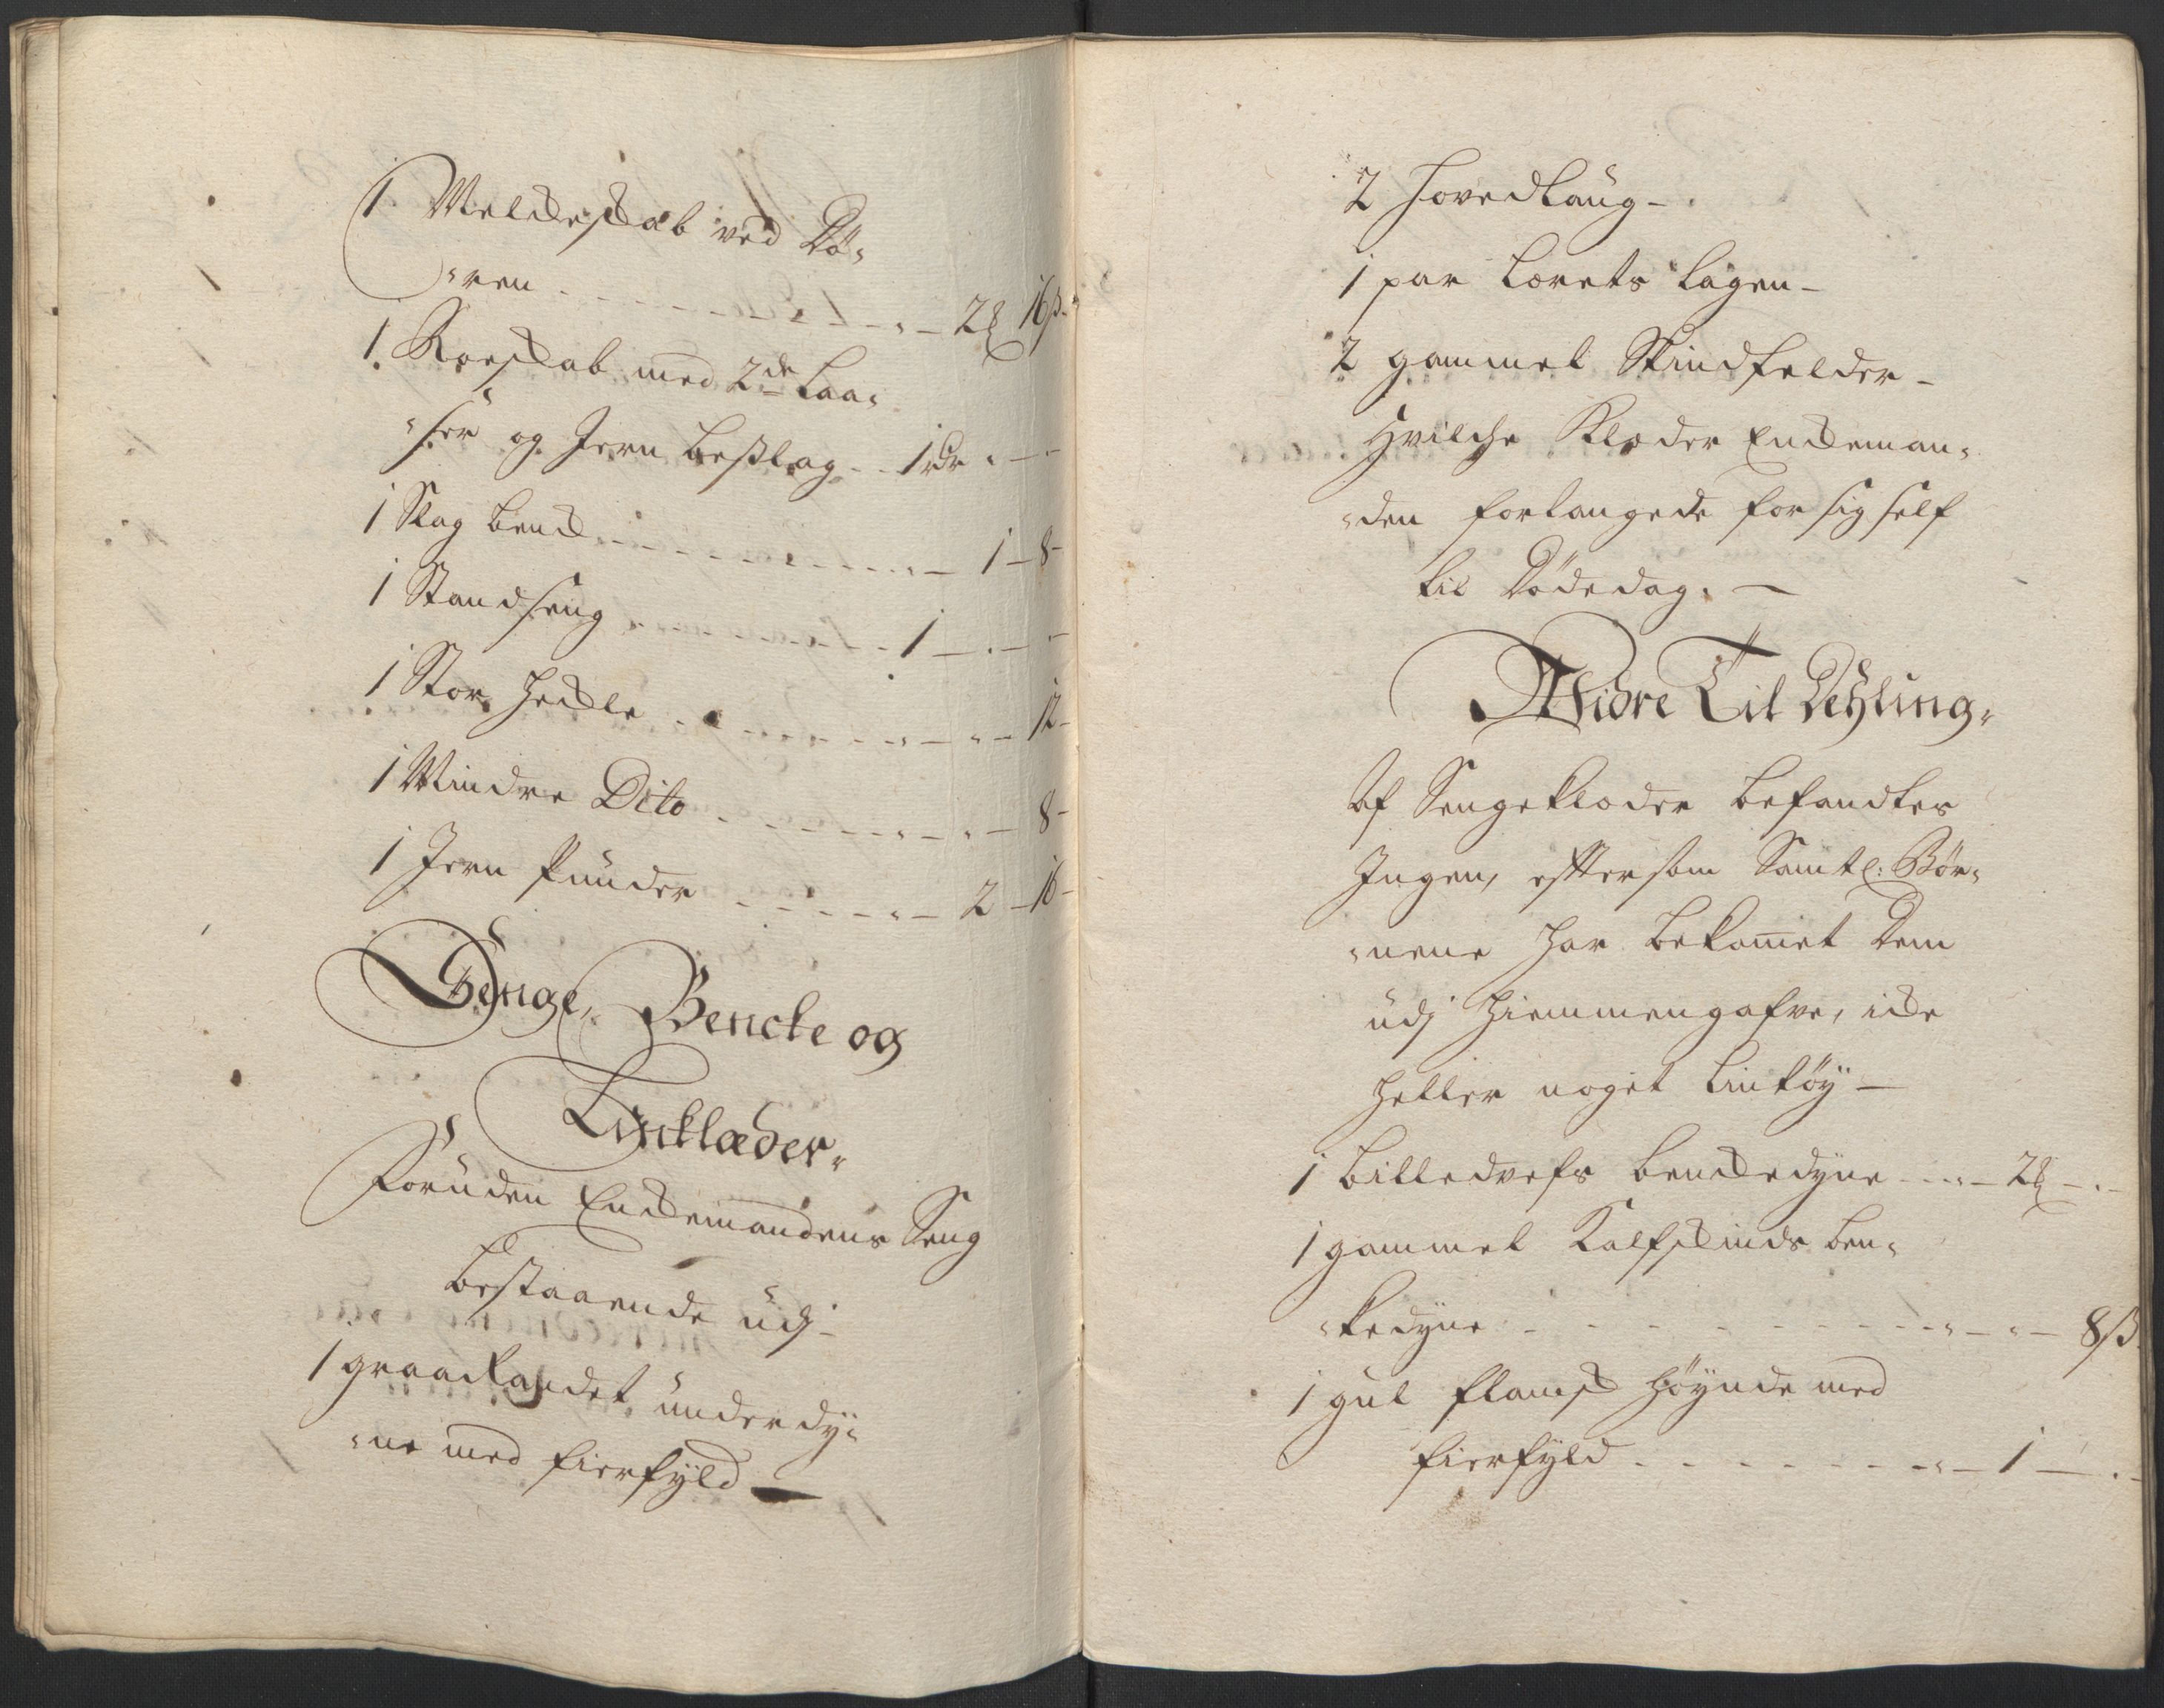 1 Melckeskab ved Dø,
,ren - - - - - - 2 ʒ 16 ß.
1 Roeskab med 2de Laa,
,ser og Jern beslag - - 1 rdr . - -
1 Slag benck - - - - - - 1 - 8 -
1 Standseng - - - - - - 1 - . -
1 Stor Heckle - - - - - - 12 -
1 Mindre Dito - - - - - - 8 -
1 Jern Punder - - - - - 2 - 16 -
Senge, Bencke og
Linklæder,
Foruden Enckemandens Seng
bestaaende udj -
1 graaRandet underdy,
,ne med fierfyld —
2 Hovedlaug -
1 par Lærets Lagen -
2 gammel Skindfelder -
Hvilche Klæder Enckeman,
,den forlangede for sig self
til Dødedag. —
Widre Til Dehling,
Af Sengeklæder befandtes
Ingen, eftersom Samtl: Bør,
,nene har bekom̄et dem
udj Hiemmengafve, icke
heller noget Lintöy —
1 billedvefs benckedyne - - - - 2 ʒ - . -
1 gammel Kalfskinds ben,
,kedyne - - - - - - - 8 ß.
1 gul flamsk Höynde med
fierfyld - - - - - - - 1 - . -